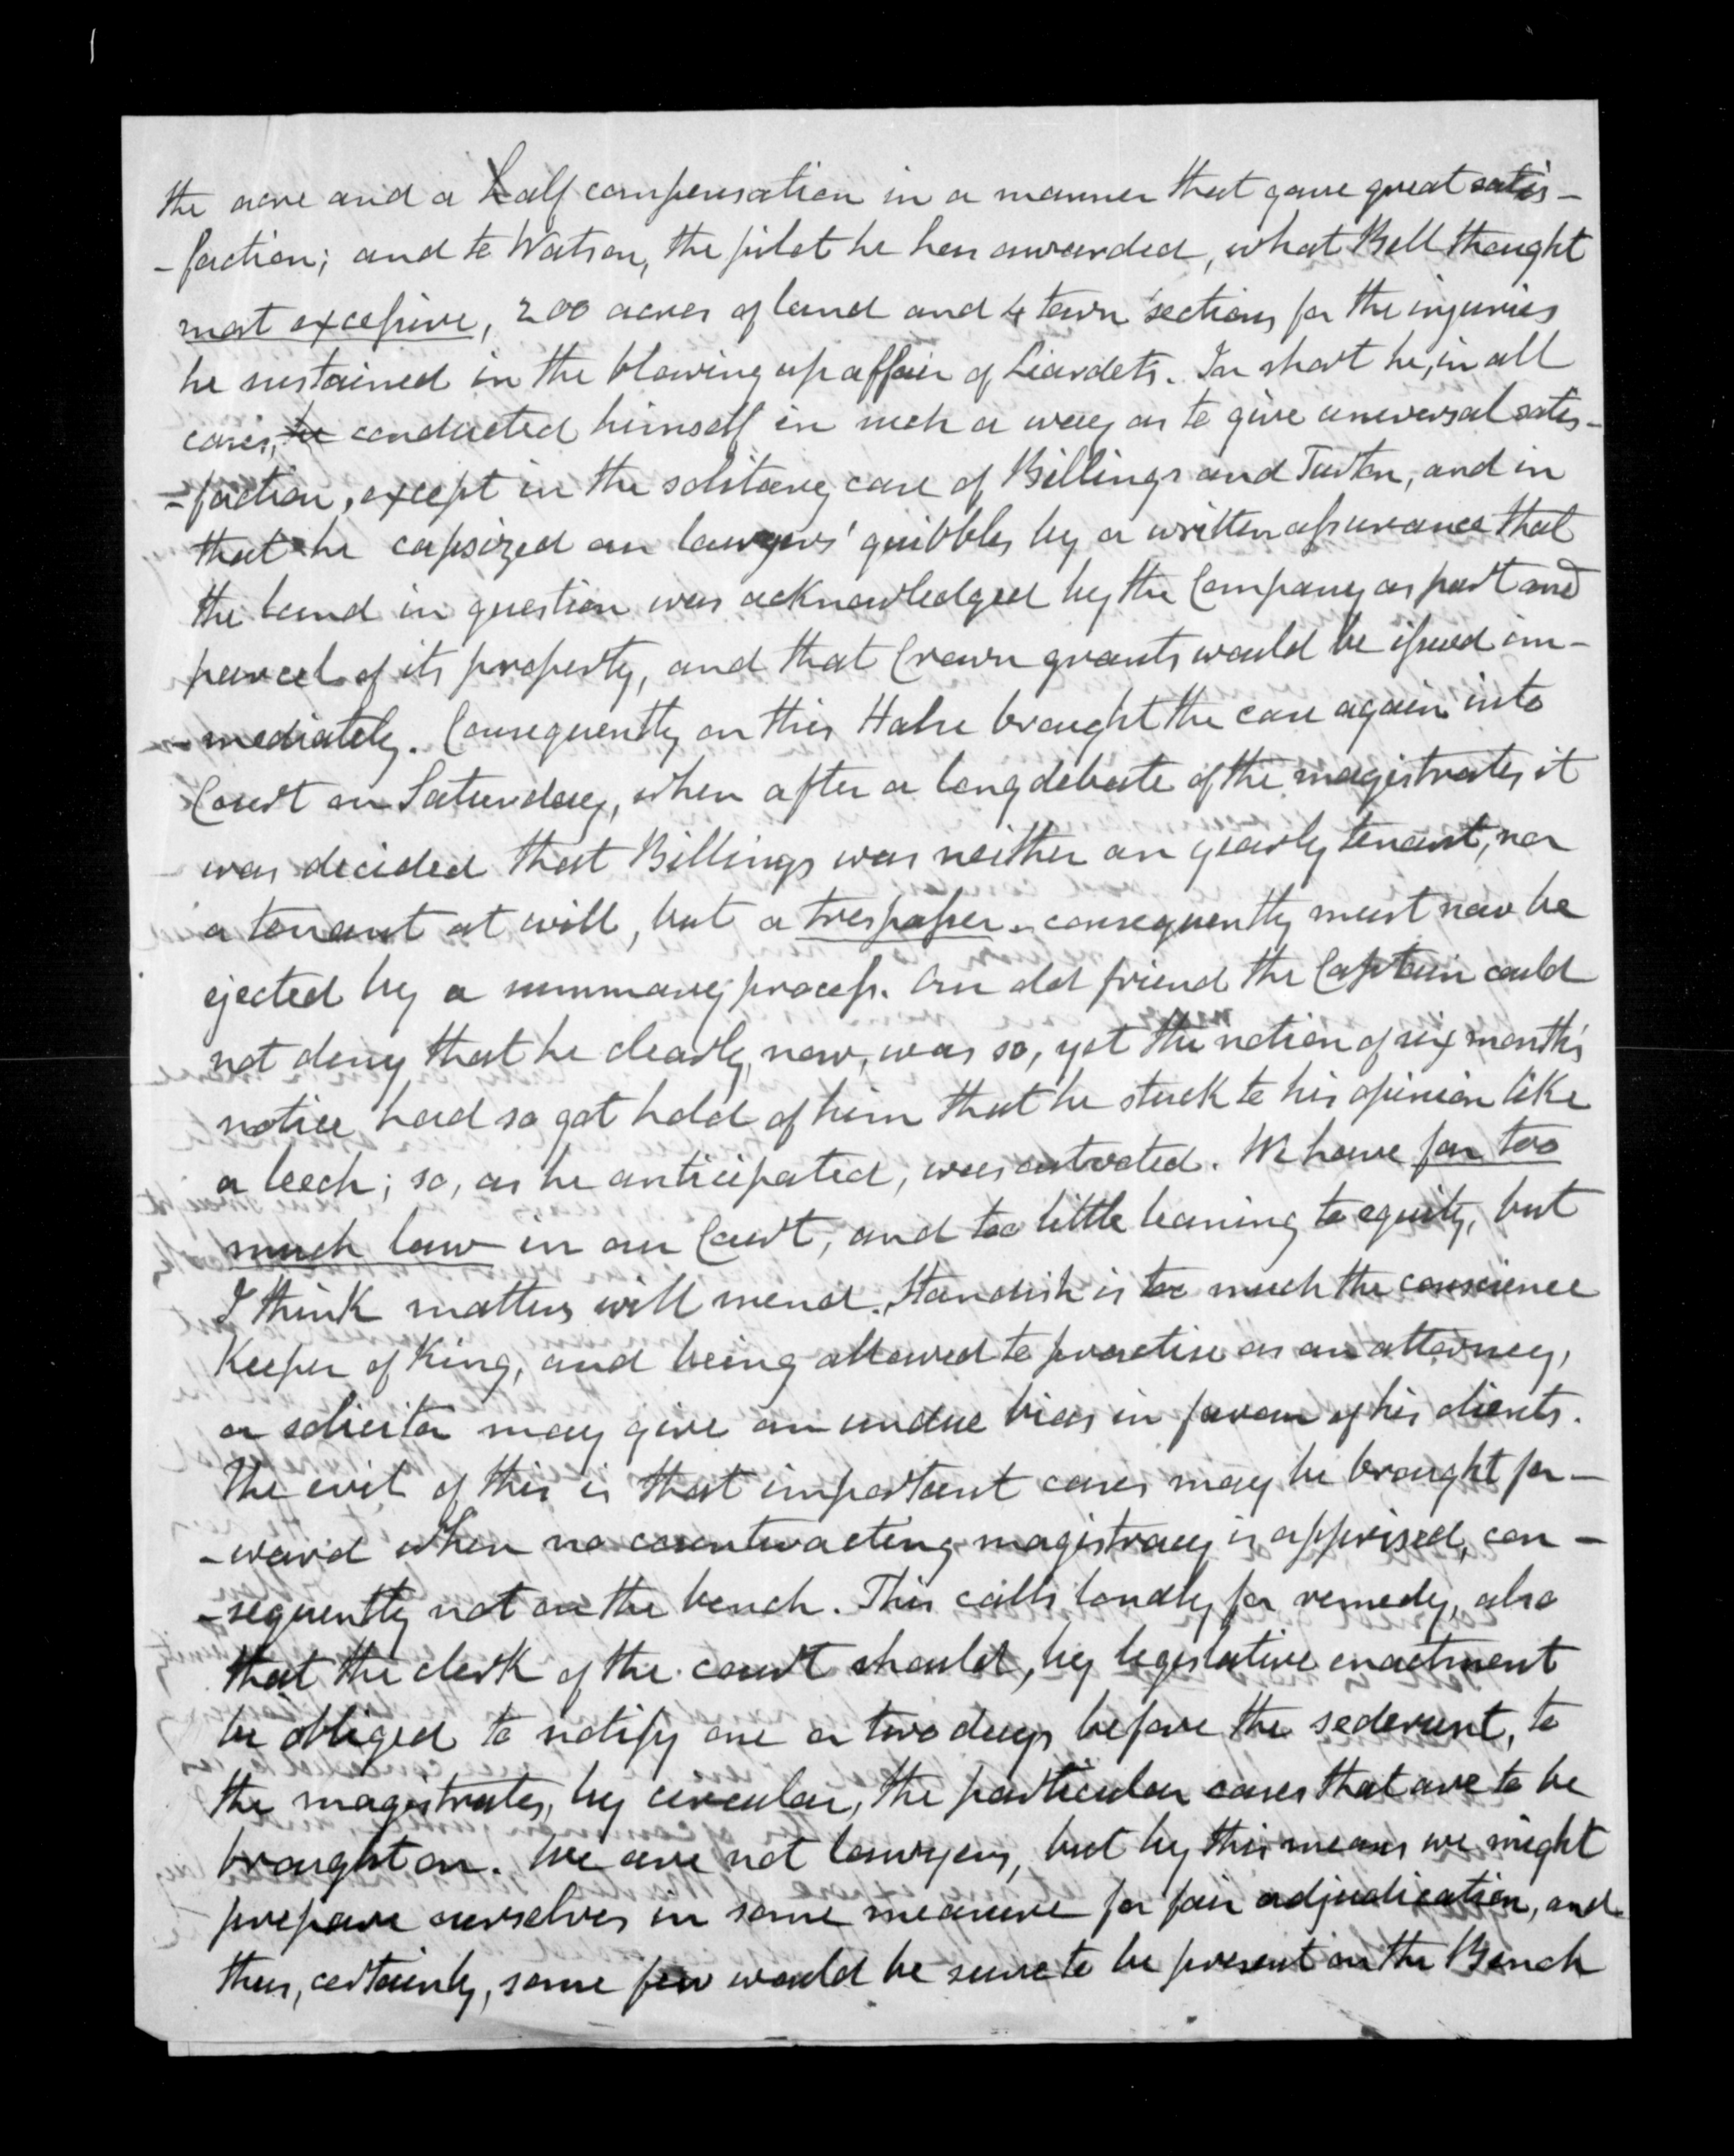 the acre and a half compensation in a manner that gave great satis-
-faction; and to Watson, the pilot he has awarded, what Bell thought
most excessive, 200 acres of land and 4 town sections for the injuries
he sustained in the blowing up affair of Liardets. In short he, in all
cases, he conducted himself in such a way as to give universal satis-
-faction, except in the solitary case of Billings and Turton, and in
that he capsized our lawyers' quibbles by a written assurance that
the land in question was acknowledged by the Company as part and
parcel of its property, and that Crown grants would be issued im-
-mediately. Consequently on this Halse brought the case again into
Court on Saturday, when after a long debate of the magistrates, it
was decided that Billings was neither an yearly tenant, nor
a tenant at will, but a trespasser - consequently must now be
ejected by a summary process. Our old friend the Captain could
not deny that he clearly, now, was so, yet the notion of six month's
notice had so got hold of him that he stuck to his opinion like
a leech; so, as he anticipated, was outvoted. We have far too
much law in our Court, and too little leaning to equity, but
I think matters will mend. Standish is too much the conscience
Keeper of King, and being allowed to practise as an attorney,
or solicitor may give an undue bias in favour of his clients.
The evil of this is that important cases may be brought for-
-ward when no counteracting magistracy is apprised, con-
-sequently not on the bench. This calls loudly for remedy, also
that the clerk of the court should, by legislative enactment
be obliged to notify one or two days before the sederunt, to
the magistrates, by circular, the particular cases that are to be
brought on. We are not lawyers, but by this means we might
prepare ourselves in some measure for fair adjudication, and
then, certainly, some few would be sure to be present on the Bench